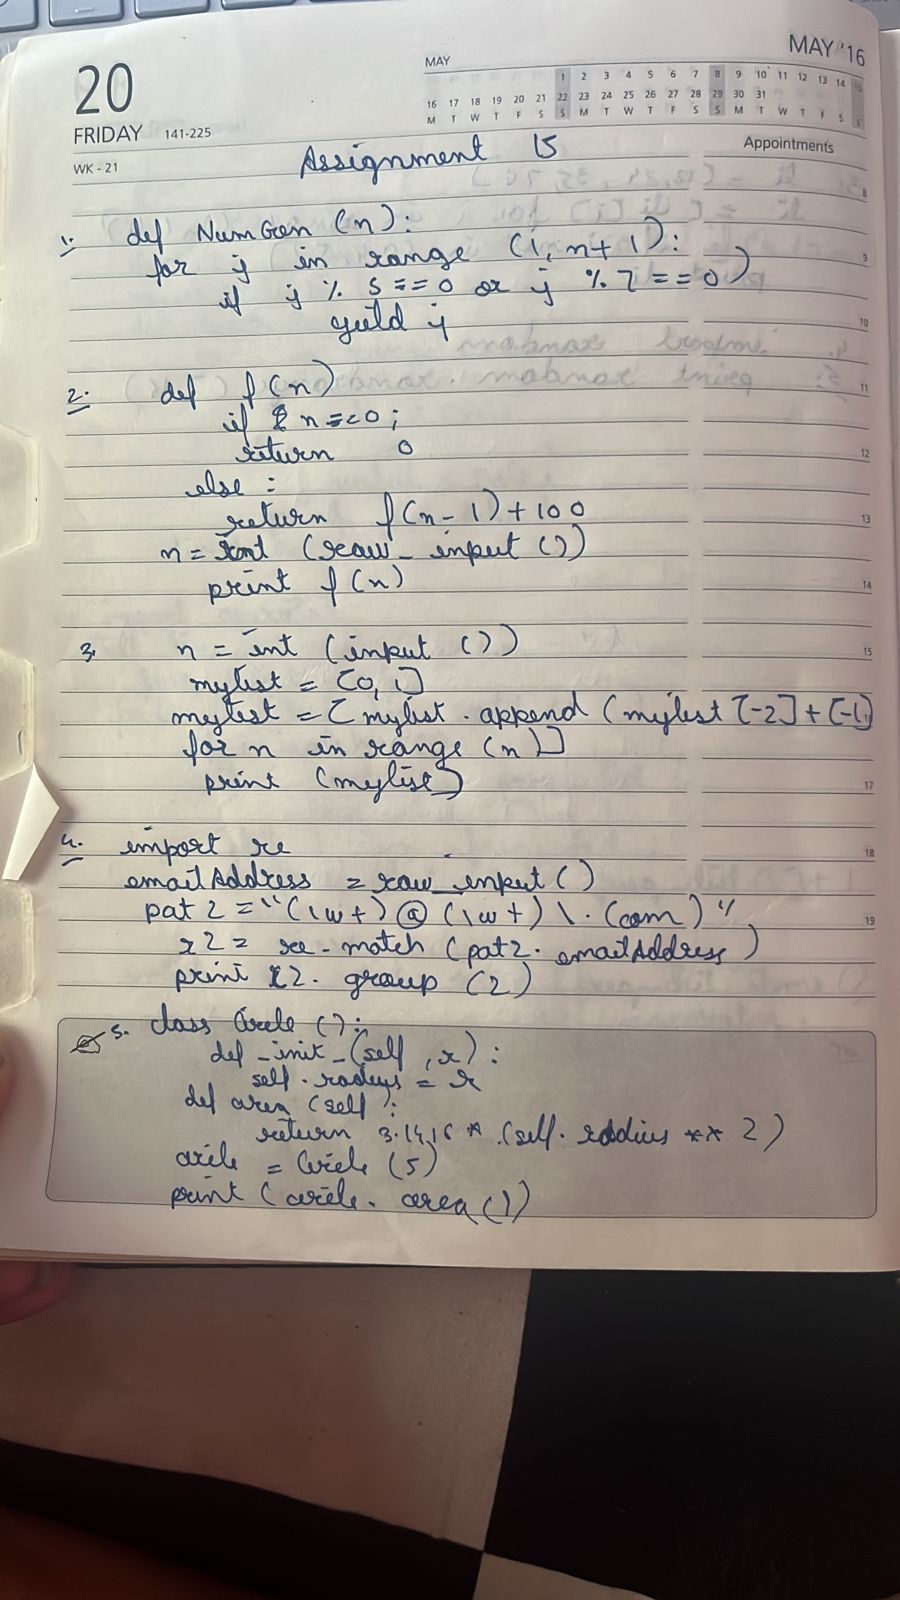 20
FRIDAY 141-225
WK - 21
MAY '16
MAY
1 2 3 4 5 6 7 8 9 10 11 12 13 14 15
16 17 18 19 20 21 22 23 24 25 26 27 28 29 30 31
M T W T F S S M T W T F S S M T W T F S S
Appointments
Assignment 15
1. def NumGen (n):
for j in range (1, n+1):
if j % 5 == 0 or j % 7 == 0)
yield j
2. def f(n)
if n == 0;
return 0
else :
return f(n-1)+100
n = int (raw_input ())
print f(n)
3. n = int (input ())
mylist = [0, 1]
mylist = [mylist.append (mylist [-2] + [-1]
for n in range (n)]
print (mylist)
4. import re
emailAddress = raw_input ()
pat2 = "(\w+)@(\w+)\.(com)"
r2 = re.match (pat2. emailAddress)
print r2. group (2)
5. class Circle ():
def _init_ (self, r):
self.radius = r
def area (self):
return 3.1416 * (self.radius ** 2)
circle = Circle (5)
print (circle. area ())
8
9
10
11
12
13
14
15
17
18
19